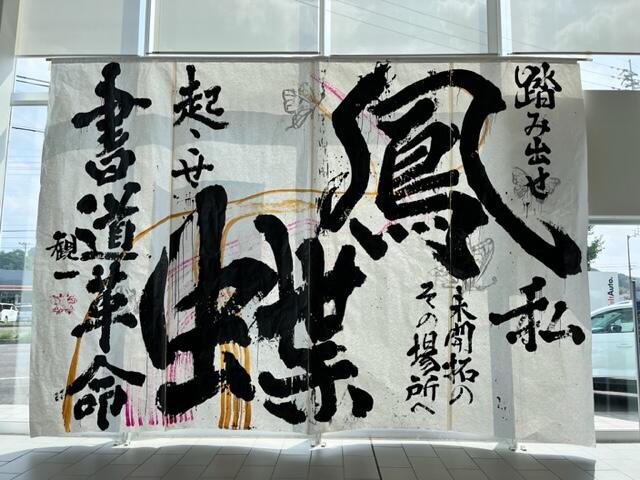 踏み出せ
私
鳳
未開拓の
その場所へ
蝶
起こせ
書道革命
観一
Auto.